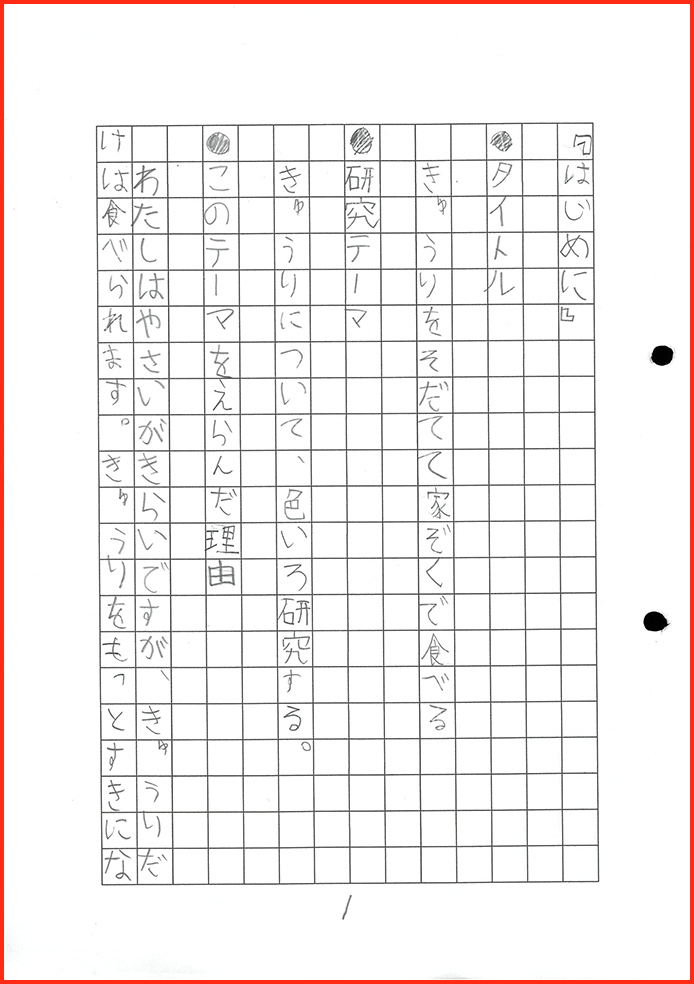 『はじめに』
●タイトル
きゅうりをそだてて家ぞくで食べる
●研究テーマ
きゅうりについて、色いろ研究する。
●このテーマをえらんだ理由
わたしはやさいがきらいですが、きゅうりだ
けは食べられます。きゅうりをもっとすきにな
1